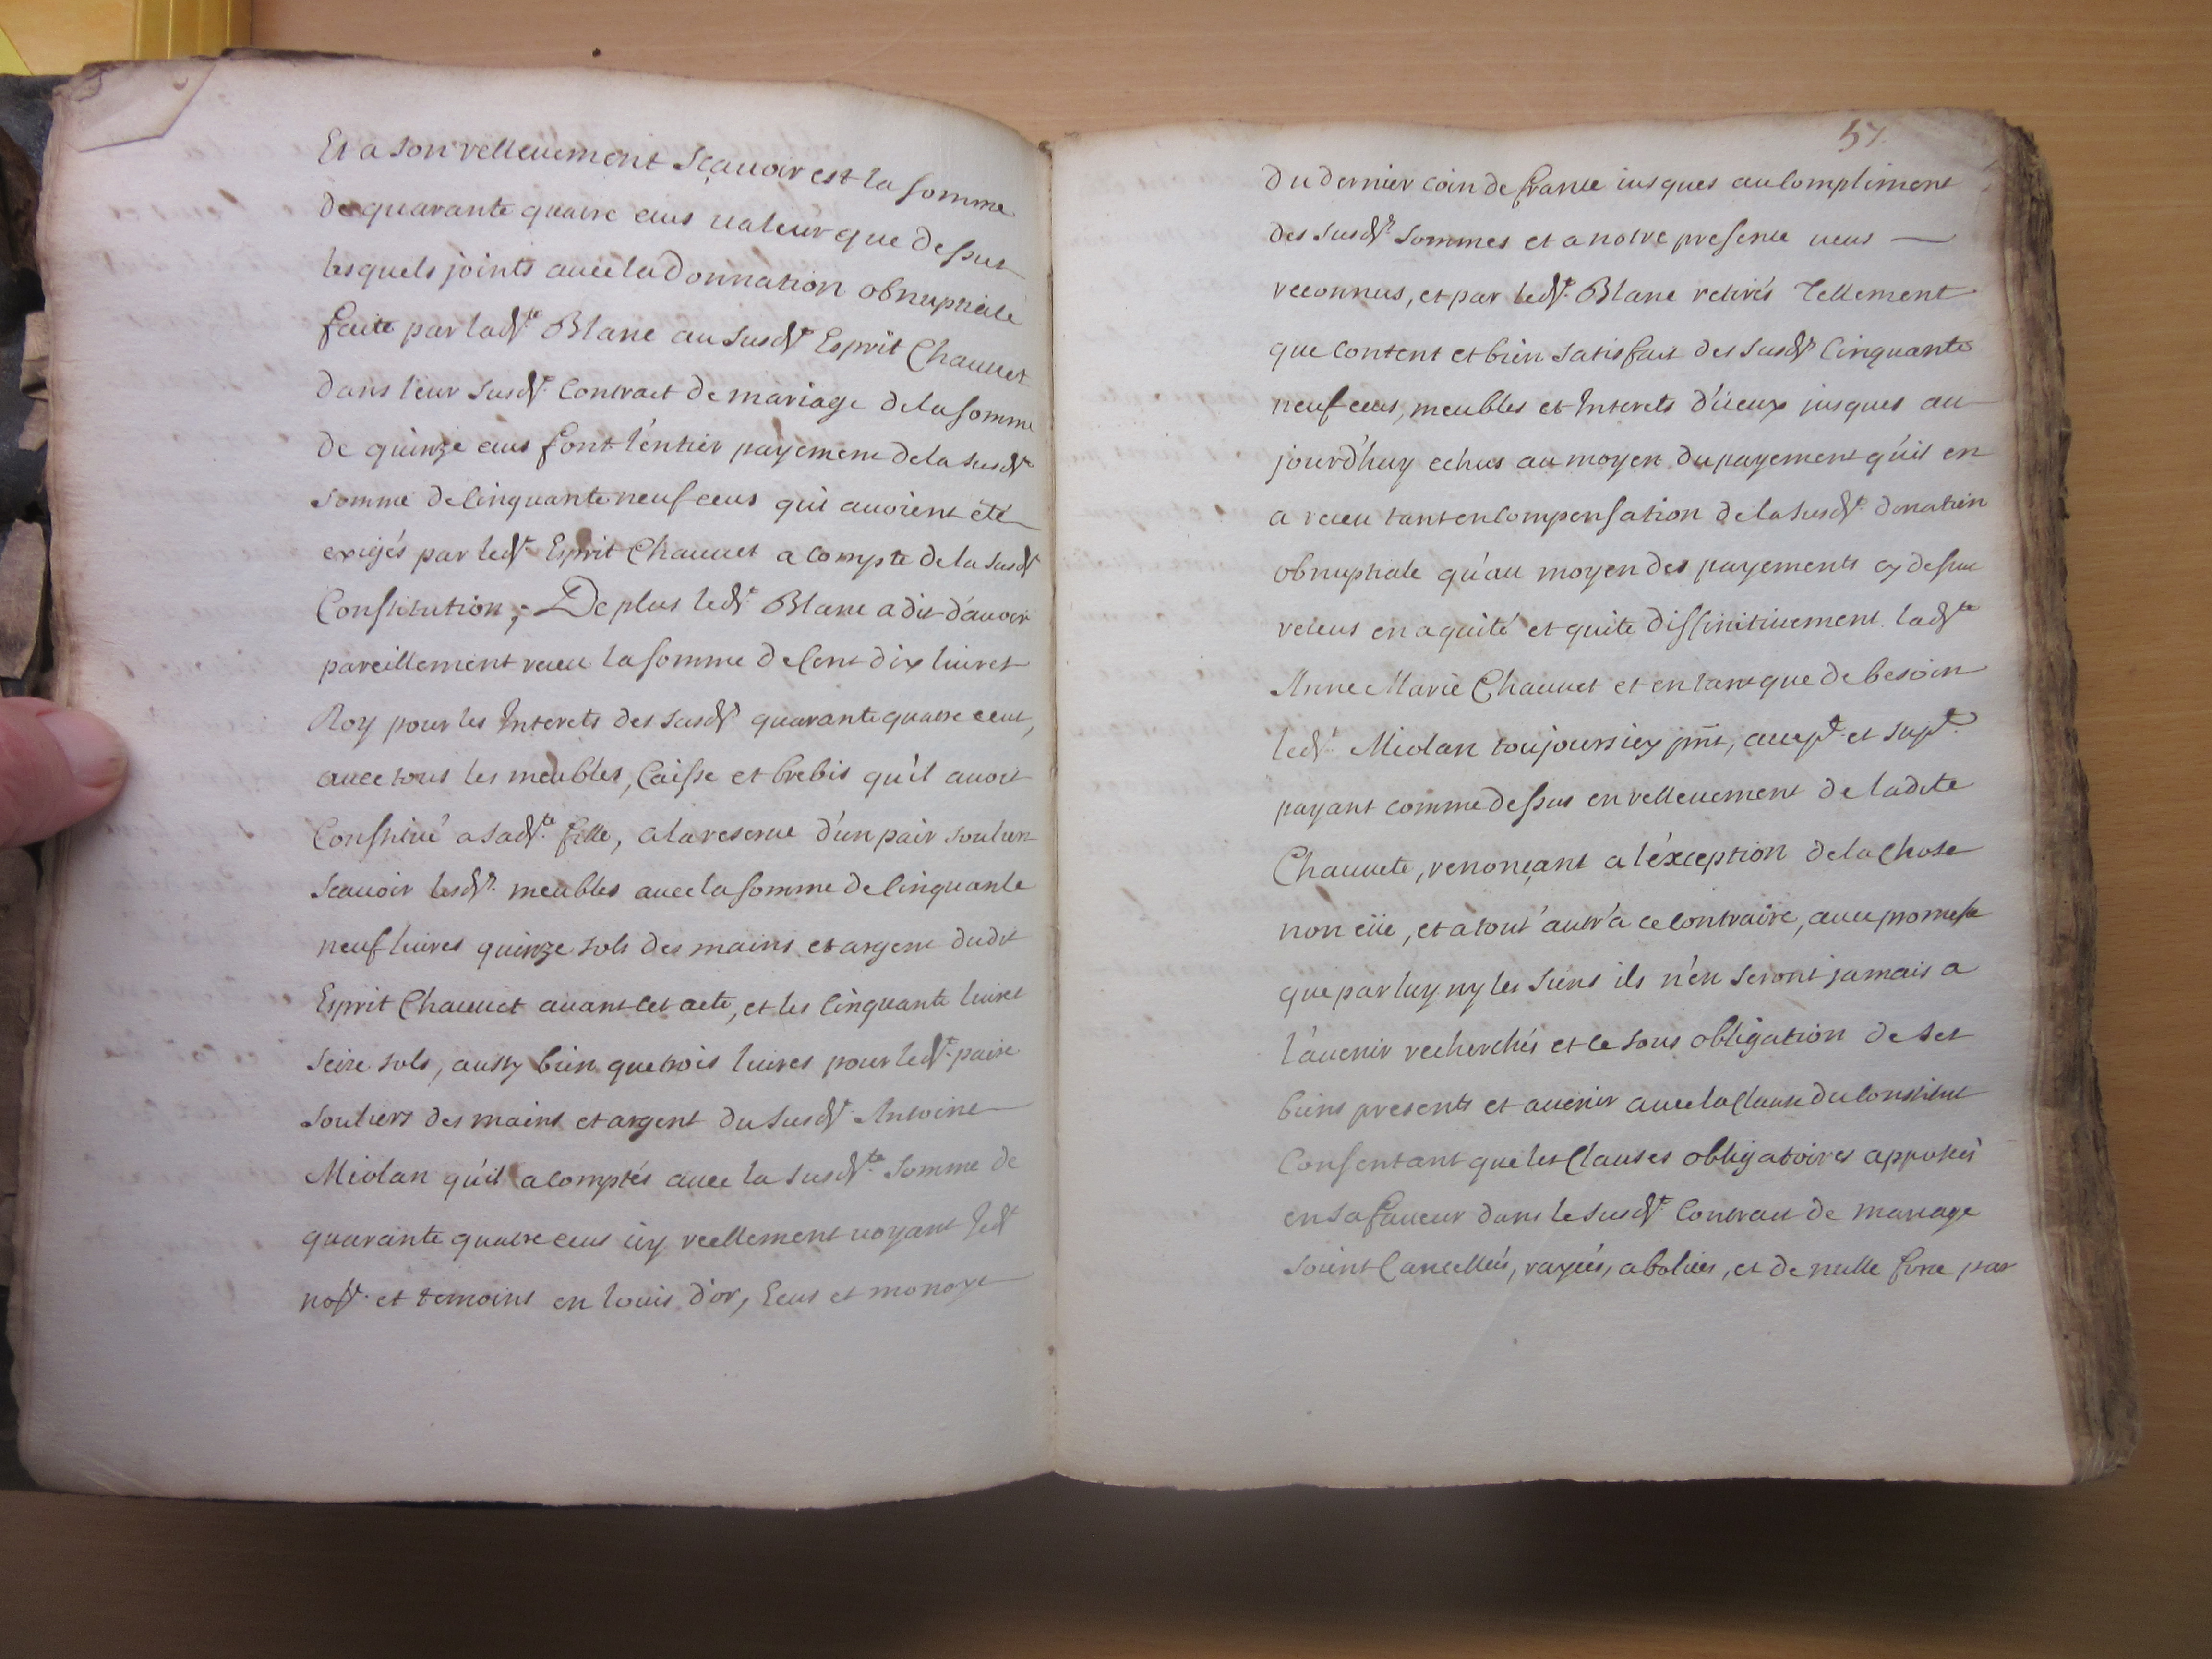 Et a son rellevement Sçavoir est la somme
de quarante quatre ecus valeur que dessus
lesquels joints avec la donnation obnuptiale
faite par lad.te Blanc au susd.t Esprit Chauvet
dans leur susd.t Contract de mariage de la somme
de quinze ecus font l'entier payement de la susd.te
somme de Cinquante neuf ecus qui avoient été
exigés par led.t Esprit Chauvet a compte de la susd.te
Constitution; De plus led.t Blanc a dit d'avoir
pareillement receu la somme de Cent dix livres
Roy pour les Interets des susd.ts quarante quatre ecus,
avec tous les meubles, Caisse et brebis qu'il avoit
Constitué a sad.te fille, a la reserve d'un pair souliers
Scavoir lesd.ts meubles avec la somme de Cinquante
neuf livres quinze sols des mains et argent dudit
Esprit Chauvet avant cet acte, et les Cinquante livres
seize sols, aussy bien que trois livres pour led.t paire
souliers des mains et argent du susd.t Antoine
Miolan qu'il a comptés avec la susd.te somme de
quarante quatre ecus icy reellement voyant led.t
no.re et temoins en louis d'or, Ecus et monoye
57
du dernier coin de france iusques au Compliment
des susd.ts sommes et a notre presence veus
reconnus, et par led.t Blanc retirés Tellement
que Content et bien satisfait des susd.ts Cinquante
neuf ecus, meubles et Interets d'iceux jusques au
jourd'huy echus au moyen du payement qu'il en
a receu tant en Compensation de la susd.te donation
obnuptiale qu'au moyen des payements cy dessus
receus en a quité et quite diffinitivement lad.te
Anne Marie Chauvet et en tant que de besoin
led.t Miolan toujours icy pnt, accep.t et stip.t
payant comme dessus en rellevement de ladite
Chauvete, renonçant a l'éxception de la Chose
non eüe, et a tout autr'a ce Contraire, avec promesse
que par luy ny les Siens ils n'en seront jamais a
l'avenir recherchés et ce sous obligation de ses
biens presents et avenir avec la Clause du Constitut
Consentant que les Clauses obligatoires apposées
en sa faveur dans le susd.t Contract de mariage
soient Cancellées, rayées, abolies, et de nulle force par